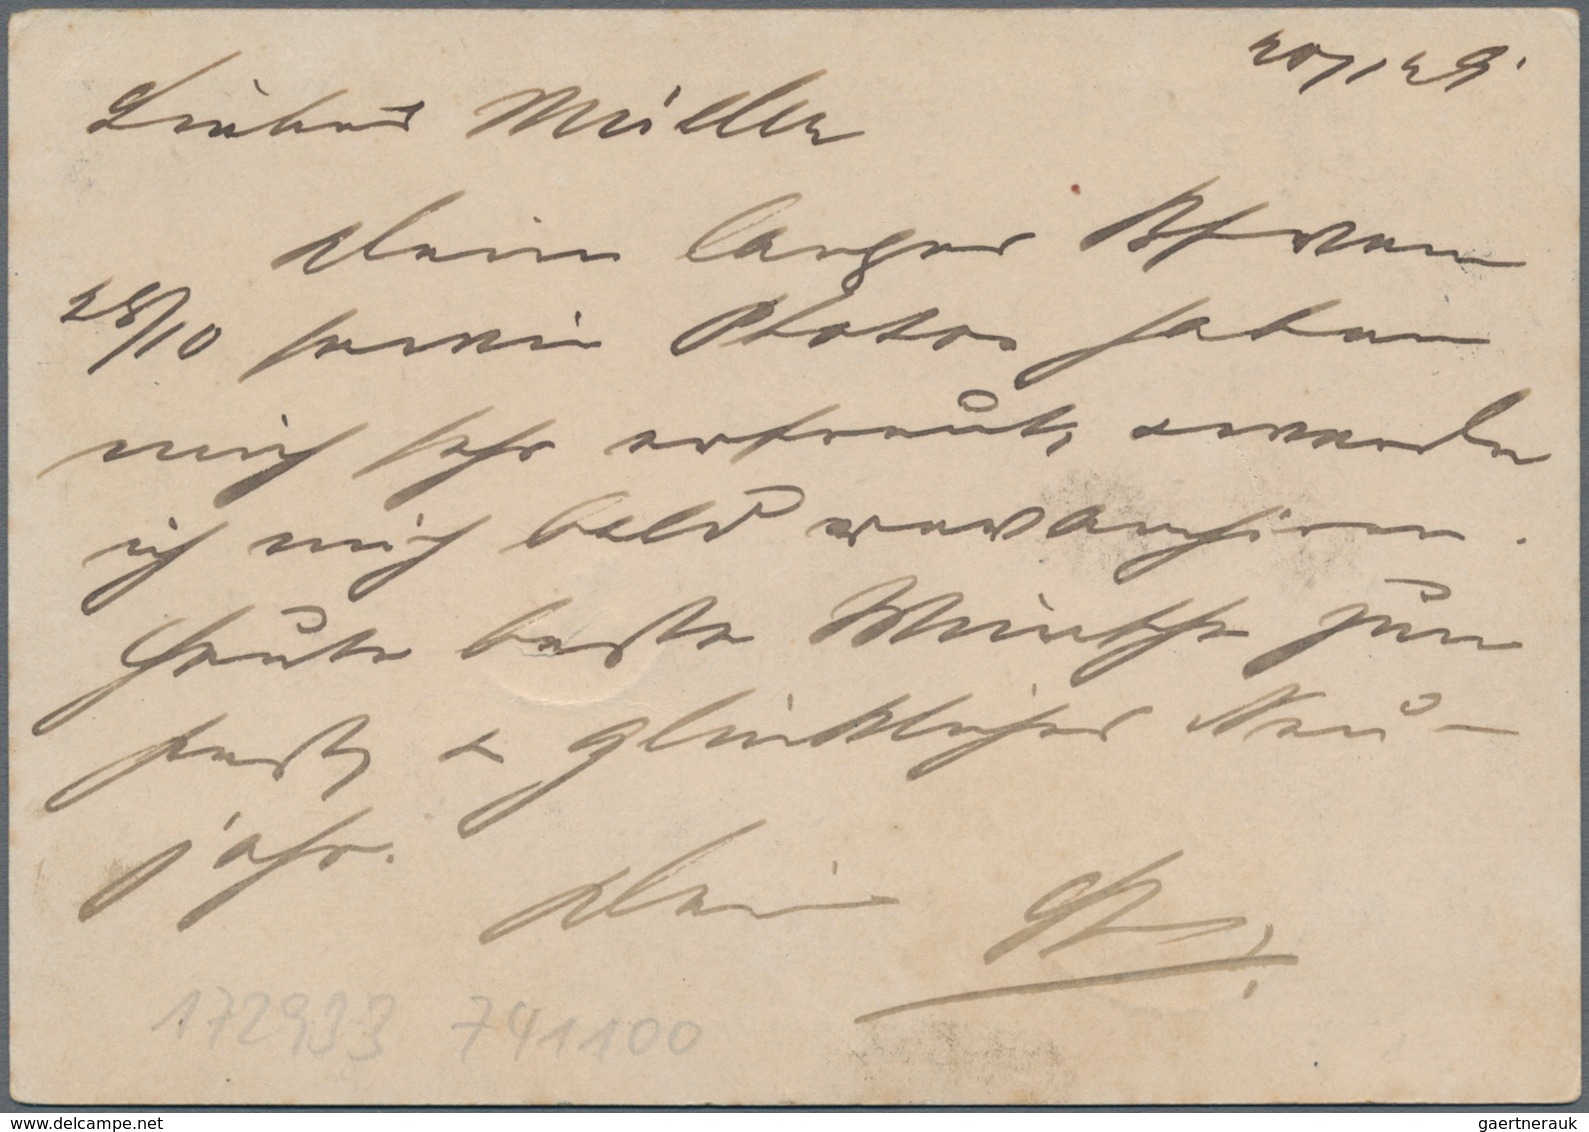 20/12 9.
Lieber Müller
Dein langer Bf vom
28/10 sowie Photos haben
mich sehr erfreut, & werde
ich mich bald revanchieren.
Heute beste Wünsche zum
Fest, & glückliches Neu-
jahr.
Dein
172933 741100
www.delcampe.net
gaertnerauk